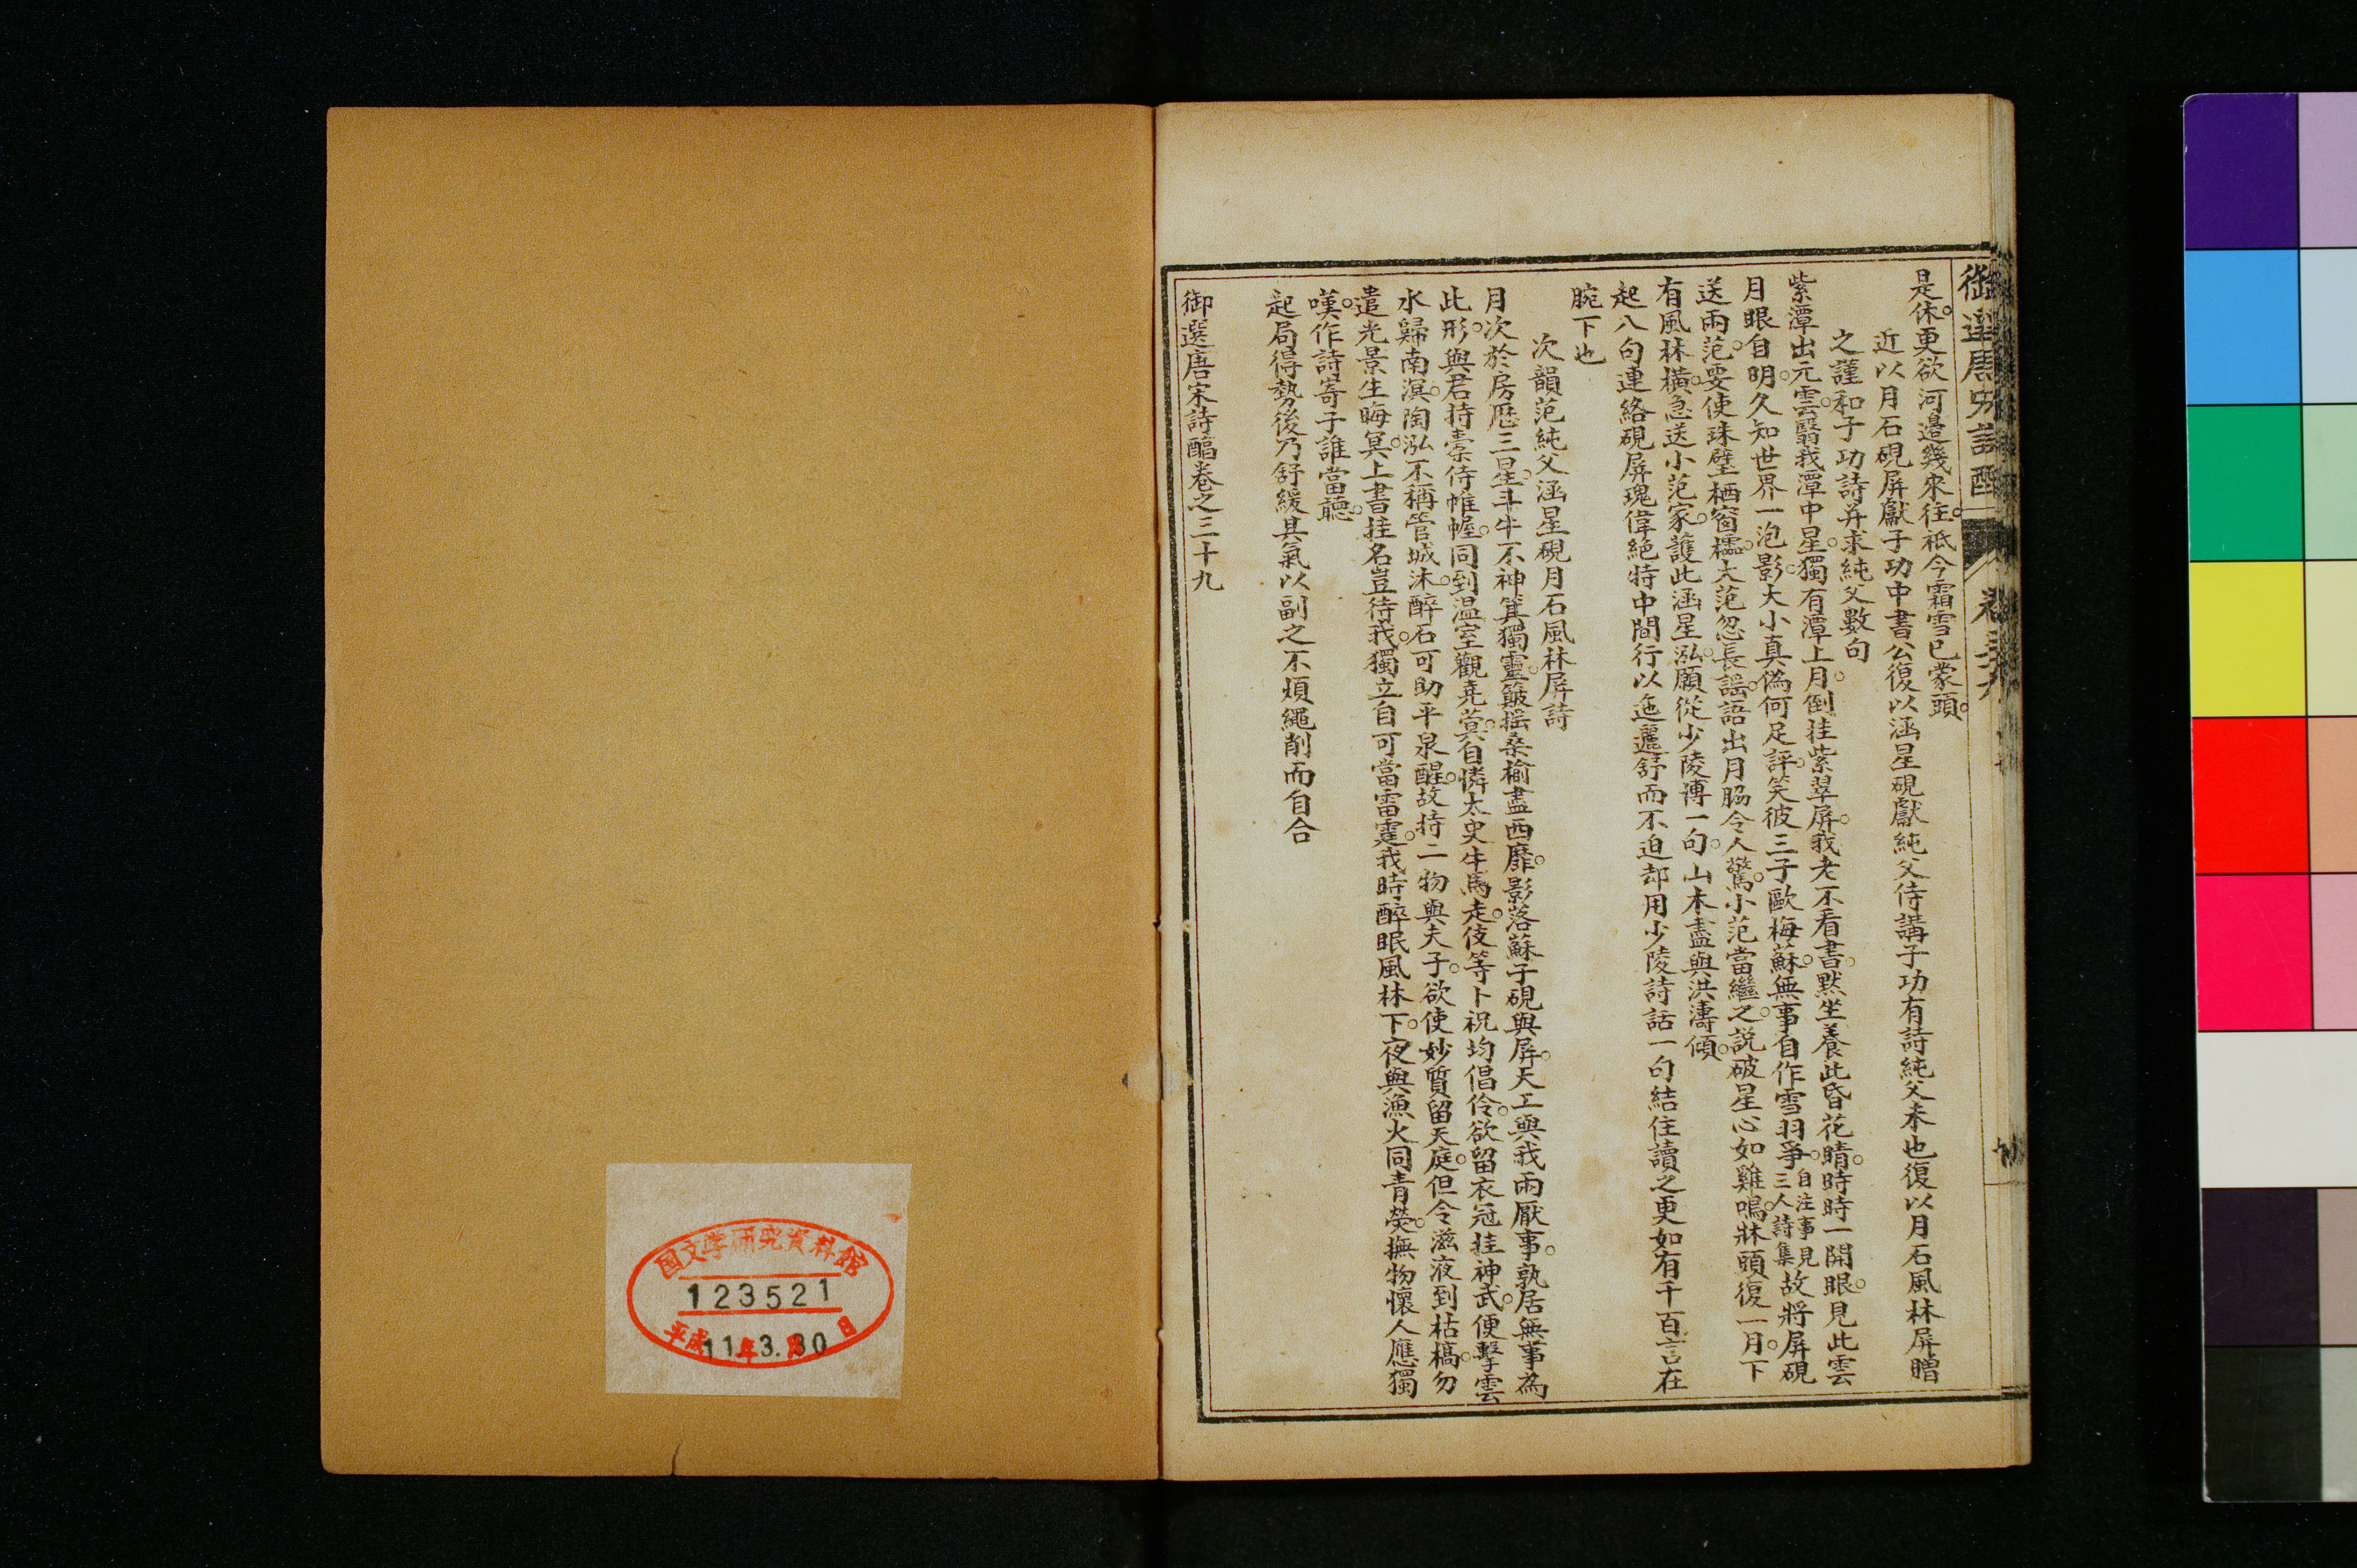 御選唐宋詩醇 卷三十九
是休。更欲河邊幾來往。祗今霜雪已蒙頭。
近以月石硯屏獻子功中書公復以涵星硯獻純父侍講子功有詩純父未也復以月石風林屏贈
之謹和子功詩并求純父數句
紫潭出元雲。翳我潭中星。獨有潭上月。倒挂紫翠屏。我老不看書。默坐養此昏花睛。時時一開眼。見此雲
月眼自明。久知世界一泡影。大小真僞何足評。笑彼三子歐梅蘇。無事自作雪羽爭。自注事見三人詩集故將屏硯
送兩范。要使珠璧栖窗櫺。大范忽長謠。語出月脇令人驚。小范當繼之。説破星心如雞鳴。牀頭復一月。下
有風林橫。急送小范家。護此涵星泓。願從少陵博一句。山木盡與洪濤傾。
起八句連絡硯屏瑰偉絶特中間行以迤邐舒而不迫却用少陵詩話一句結住讀之更如有千百言在
腕下也
次韻范純父涵星硯月石風林屏詩
月次於房歴三星。斗牛不神箕獨靈。簸搖桑榆盡西靡。影落蘇子硯與屏。天工與我兩厭事。孰居無事為
此形。與君持橐侍帷幄。同到温室觀堯蓂。自憐太史牛馬走。伎等卜祝均倡伶。欲留衣冠挂神武。便擊雲
水歸南溟。陶泓不稱管城沐。醉石可助平泉醒。故持二物與夫子。欲使妙質留天庭。但令滋液到枯槁。勿
遣光景生晦冥。上書挂名豈待我。獨立自可當雷霆。我時醉眠風林下。夜與漁火同青熒。撫物懷人應獨
嘆。作詩寄子誰當聽。
起局得勢後乃舒緩其氣以副之不煩繩削而自合
御選唐宋詩醇卷之三十九
国文学研究資料館
123521
平成11年3.月30日